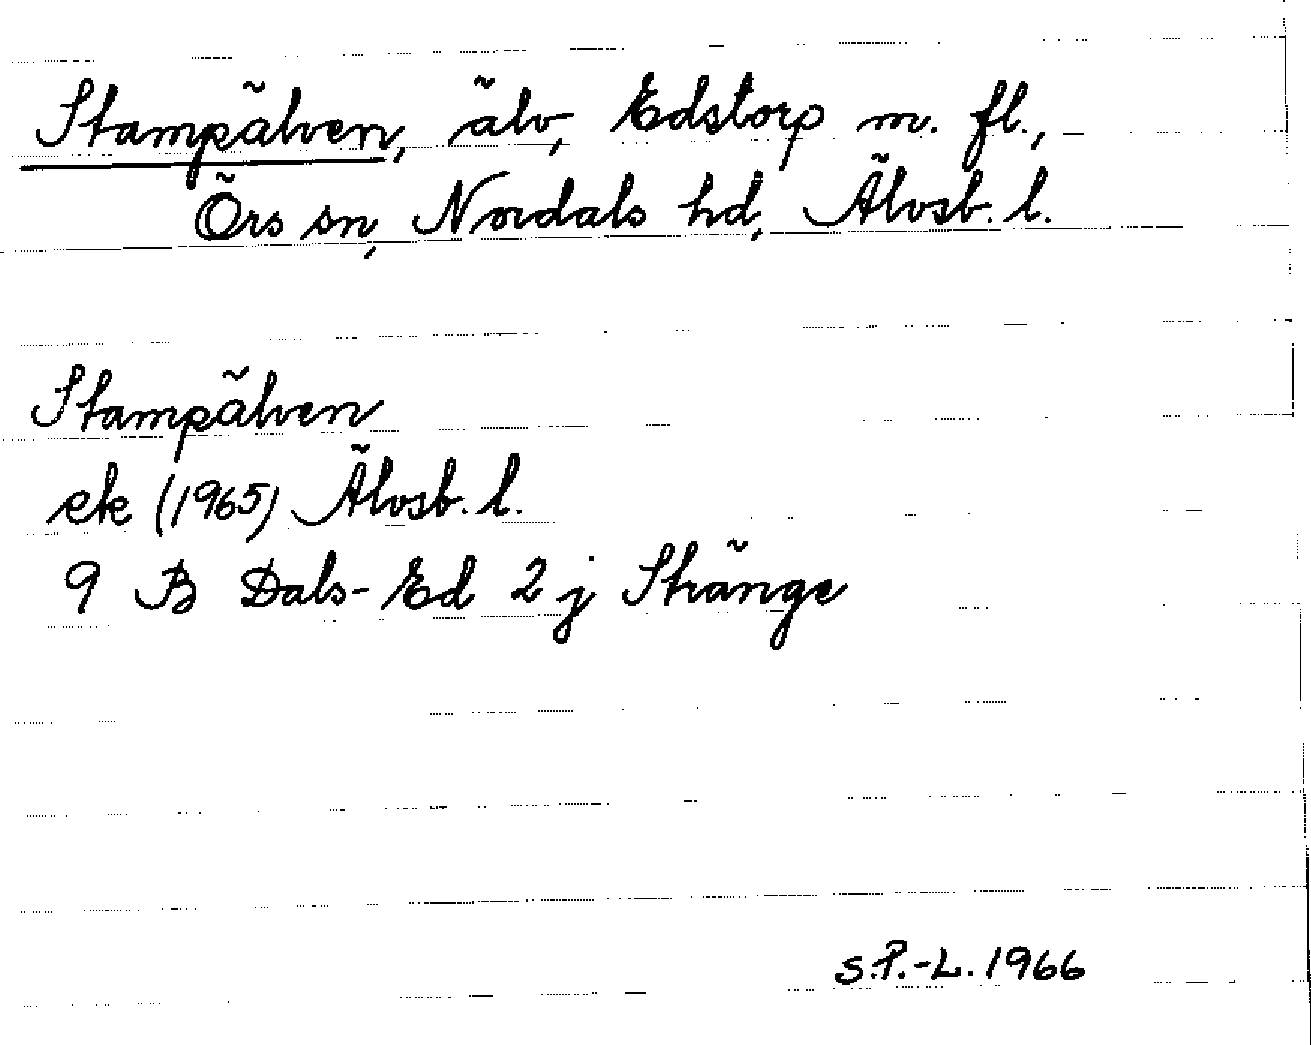 Stampälven, älv, Edstorp m. fl.,
Örs sn, Nordals hd, Älvsb. l.
Stampälven
ek (1965) Älvsb. l.
9 B Dals-Ed 2 j Stränge
S.P.-L. 1966